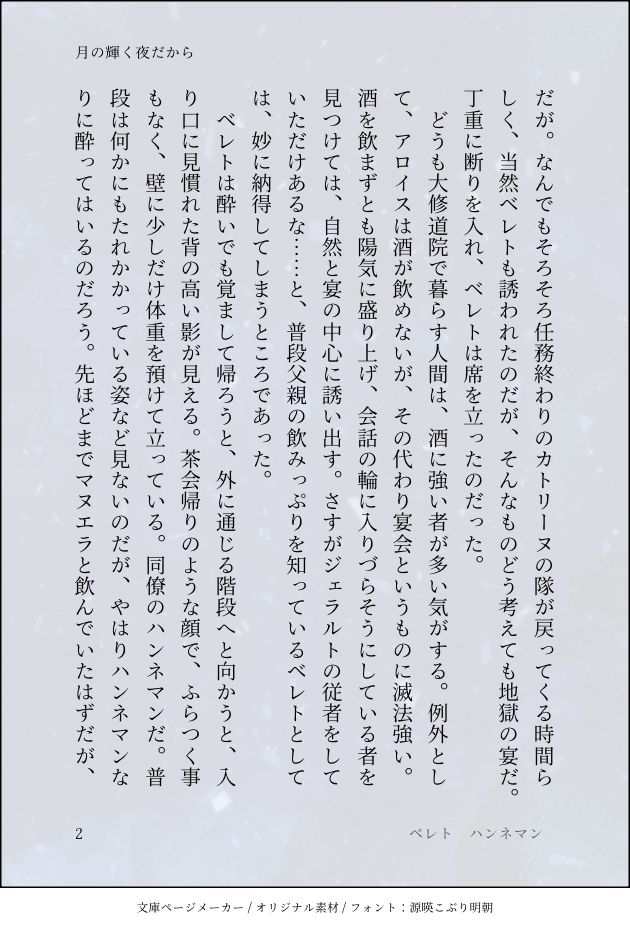 月の輝く夜だから
だが。なんでもそろそろ任務終わりのカトリーヌの隊が戻ってくる時間ら
しく、当然ベレトも誘われたのだが、そんなものどう考えても地獄の宴だ。
丁重に断りを入れ、ベレトは席を立ったのだった。
どうも大修道院で暮らす人間は、酒に強い者が多い気がする。例外とし
て、アロイスは酒が飲めないが、その代わり宴会というものに滅法強い。
酒を飲まずとも陽気に盛り上げ、会話の輪に入りづらそうにしている者を
見つけては、自然と宴の中心に誘い出す。さすがジェラルトの従者をして
いただけあるな……と、普段父親の飲みっぷりを知っているベレトとして
は、妙に納得してしまうところであった。
ベレトは酔いでも覚まして帰ろうと、外に通じる階段へと向かうと、入
り口に見慣れた背の高い影が見える。茶会帰りのような顔で、ふらつく事
もなく、壁に少しだけ体重を預けて立っている。同僚のハンネマンだ。普
段は何かにもたれかかっている姿など見ないのだが、やはりハンネマンな
りに酔ってはいるのだろう。先ほどまでマヌエラと飲んでいたはずだが、
2
ベレト　ハンネマン
文庫ページメーカー / オリジナル素材 / フォント：源暎こぶり明朝